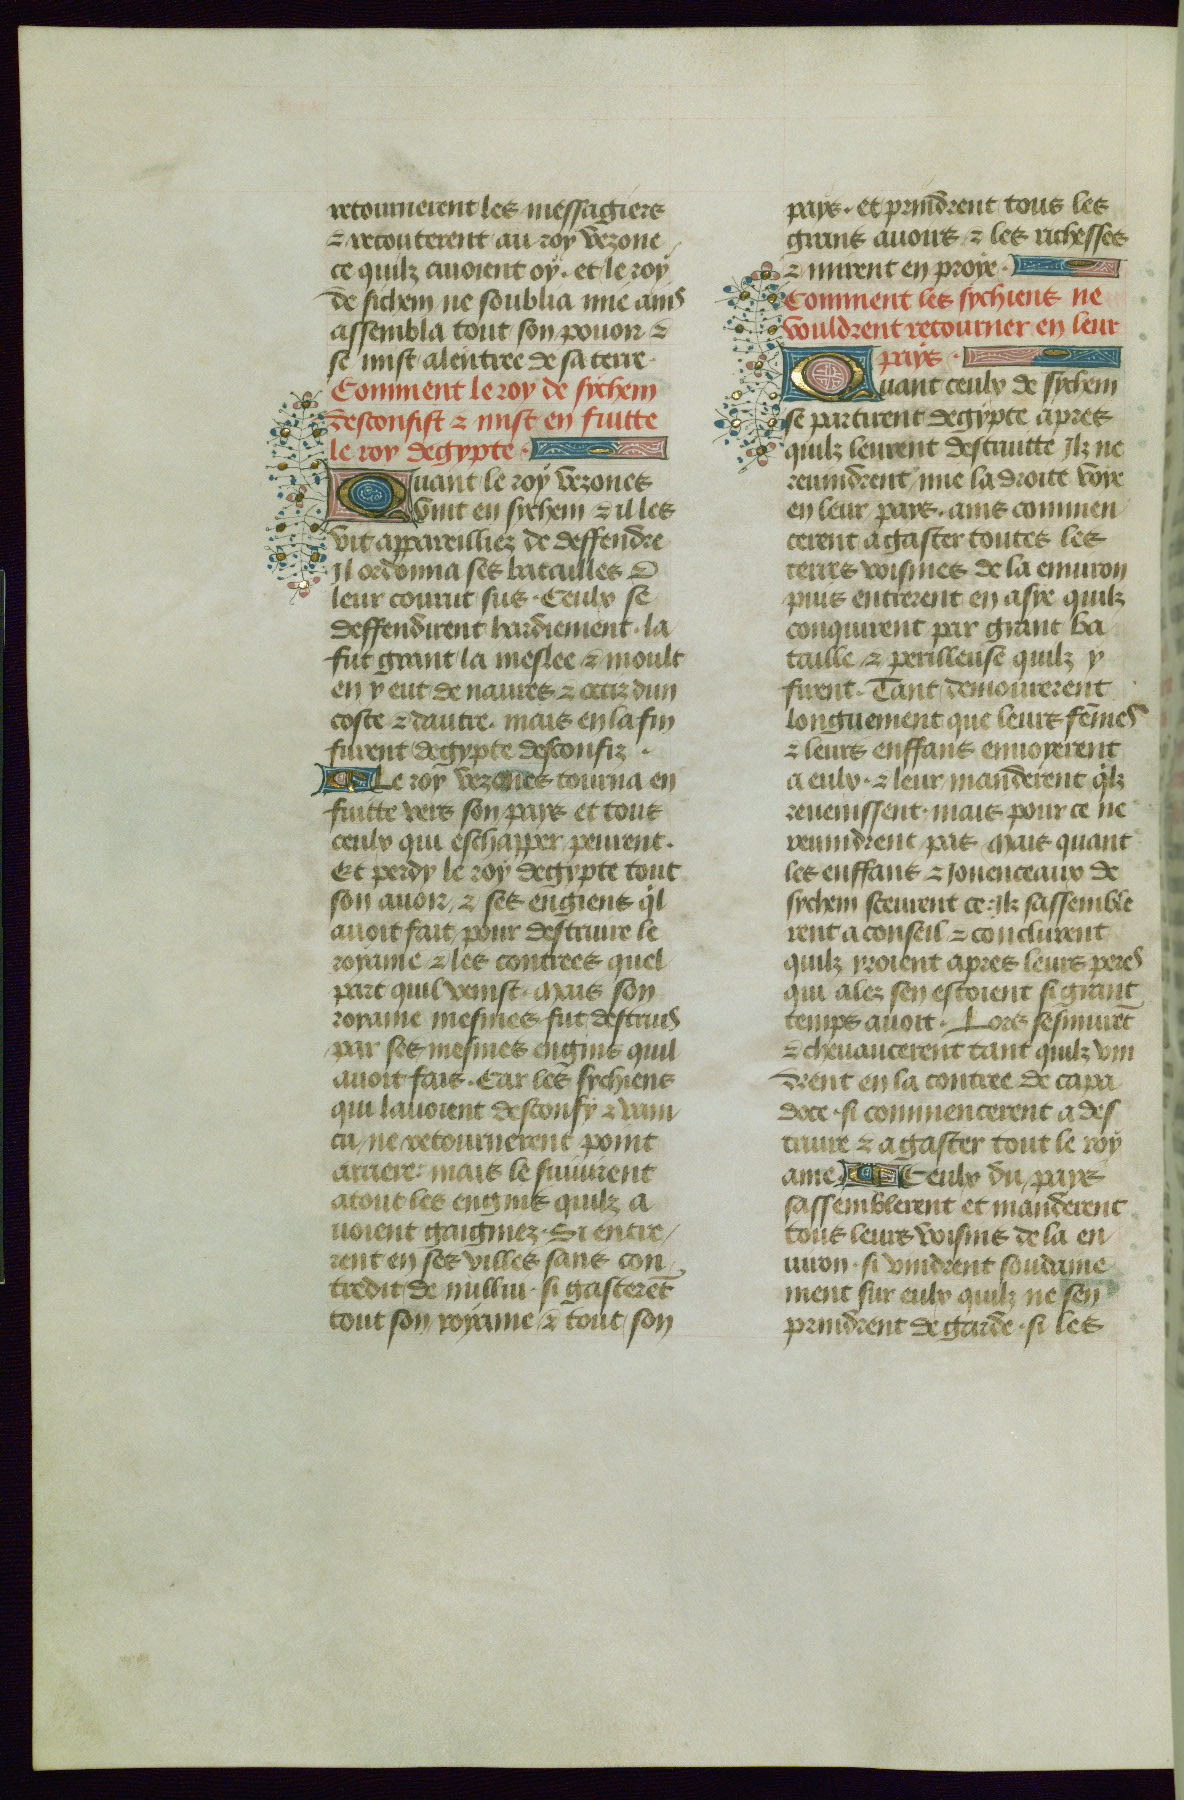 retournerent les messagiers
⁊ recouterent au roy vezone
ce quilz auoient oÿ. et le roÿ
de sichem ne soublia mie ains
assembla tout son pouoir ⁊
se mist a lentree de sa terre.
Comment le roy de sychem
desconfist ⁊ mist en fuitte
le roy degypte.
Quant le roÿ vezones
vint en sychem ⁊ il les
vit appareilliez de deffendre
Il ordonna ses batailles ⁊
leur courut sus. Ceulx se
deffendirent hardiement. la
fut grant la meslee ⁊ moult
en y eut de naures ⁊ occiz dun
coste ⁊ dautre. mais en la fin
furent degypte desconfiz.
Le roÿ vezones tourna en
fuitte vers son pays et tous
ceulx qui eschapper peurent.
Et perdy le roÿ degypte tout
son auoir ⁊ ses engiens q̄l
auoit fait pour destruire le
royame ⁊ les contrees quel
part quil venist. Mais son
royame mesmes fut destruis
par ses mesmes engins quil
auoit fais. Car les sychiens
qui lauoient desconfÿ ⁊ vain
cu, ne retournerent point
arriere: mais le suiuirent
atout les engins quilz a
uoient gaigniez. Si entre
rent en ses villes sans con
tredit de nulluy. si gasterēt
tout son royame ⁊ tout son
pays. et prindrent tous les
grans auoirs ⁊ les richesses
⁊ mirent en proye.
Comment les sychiens ne
vouldrent retourner en leur
pays.
Quant ceulx de sychem
se partirent degypte apres
quilz leurent destruitte Ilz ne
reuindrent mie la droite voye
en leur pays. ains commen
cerent a gaster toutes les
terres voisines de la enuiron
puis entrerent en asye quilz
conquirent par grant ba
taille ⁊ perilleuse quilz y
firent. Tant demourerent
longuement que leurs fēmes
⁊ leurs enffans enuoyerent
a eulx. ⁊ leur manderent q̄lz
reuenissent. mais pour ce ne
reuindrent pas Mais quant
les enffans ⁊ Jouenceaux de
sychem sceurent ce: ilz sassemble
rent a conseil ⁊ conclurent
quilz yroient apres leurs peres
qui alez sen estoient si grant
temps auoit. Lors sesmurēt
⁊ cheuaucerent tant quilz vin
drent en la contree de capa
doce. si commencerent a des
truire ⁊ a gaster tout le roÿ
ame. Ceulx du pays
sassemblerent et manderent
tous leurs voisins de la en
uiron. si vindrent soudaine
ment sur eulx quilz ne sen
prindrent de garde. si les